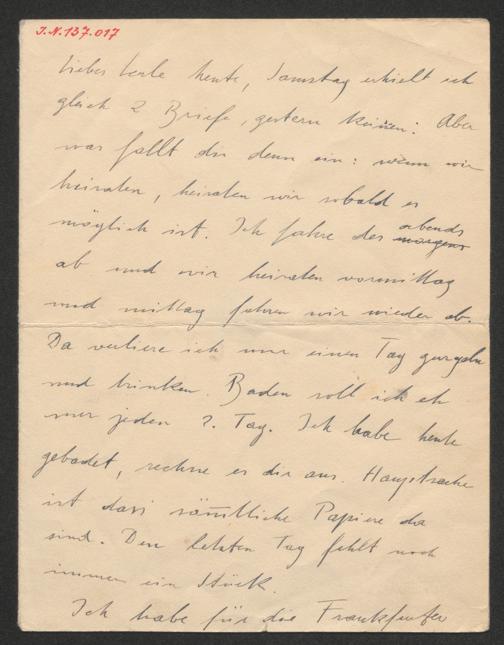 J.N. 137.017
Liebes Lerle heute, Samstag erhielt ich
gleich 2 Briefe, gestern keinen! Aber
was fällt dir denn ein: wenn wir
heiraten, heiraten wir sobald es
möglich ist. Ich fahre des abends morgens
ab und wir heiraten vormittag
und mittag fahren wir wieder ab.
Da verliere ich nur einen Tag gurgeln
und trinken. Baden soll ich eh
nur jeden 2. Tag. Ich habe heute
gebadet, rechne es dir aus. Hauptsache
ist dass sämtliche Papiere da
sind. Den letzten Tag fehlt noch
immer ein Stück.
Ich habe für die Frankfurter